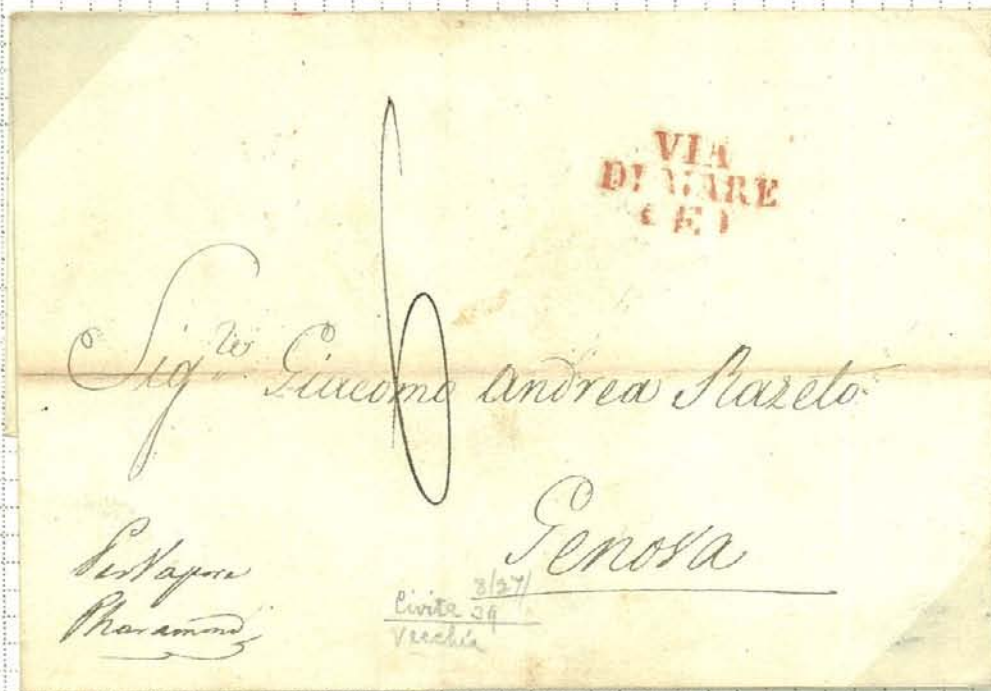 VIA
DI MARE
( E )
6
Sig.re Giacomo Andrea Razeto
Genova
Per Vapore
Pharamond
8/27/
Civita 39
Vecchia